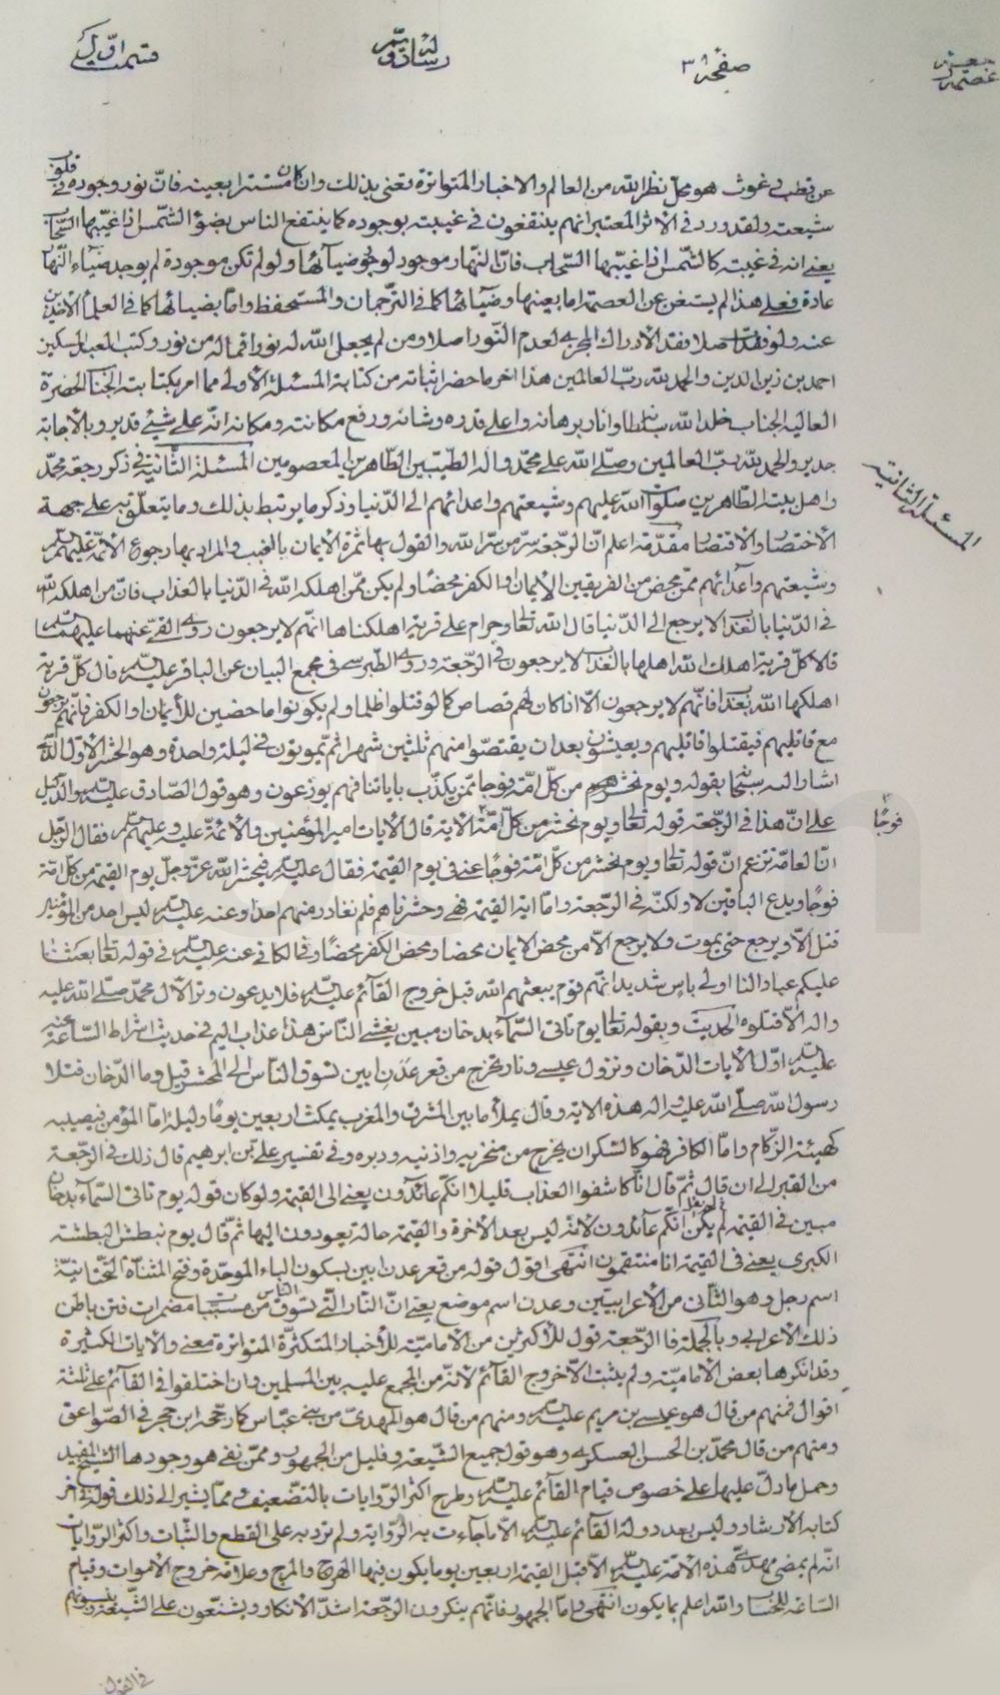 بعصمة
عصمة
صفحة ٣
رسالة در
قسمت اول
عن قطب في غوث هو محل نظر الله من العالم والاخبار المتواترة تعنى بذلك وان كان مستترا بعينه فان نور وجوده في قلوب
شيعته ولقد ورد في الاثر المعتبر انهم ينتفعون في غيبته بوجوده كما ينتفع الناس بضوء الشمس اذا غيبها السحاب
يعني انه في غيبته كالشمس اذا غيبها السحاب فان النهار موجود لوجود ضيائها ولو لم تكن موجودة لم يوجد ضياء النهار
عادة فعلى هذا لم يستغن عن العصمة اما بعينها وضيائها كما في الترجمان والمستحفظ واما بضيائها كما في العلماء الاخذين
عنه ولو فقد اصلا فقد الادراك المجزى لعدم النور اصلا ومن لم يجعل الله له نورا فما له من نور وكتب العبد المسكين
احمد بن زين الدين والحمد لله رب العالمين هذا اخر ما حضر اثباته من كتابة المسئلة الاولى مما امر بكتابته الجناب الحضرة
العالية الجناب خلد الله سلطانه وانار برهانه واعلى قدره وشانه ورفع مكانته ومكانه انه على شيئ قدير وبالاجابة
جدير والحمد لله رب العالمين وصلى الله على محمد واله الطيبين الطاهرين المعصومين المسئلة الثانية في ذكر رجعة محمد
المسئلة الثانية
واهل بيته الطاهرين صلوات الله عليهم وشيعتهم واعدائهم الى الدنيا وذكر ما يرتبط بذلك وما يتعلق به على جهة
الاختصار والاقتصار مقدمة اعلم ان الرجعة سر من سر الله والقول بها ثمرة الايمان بالغيب والمراد بها رجوع الائمة عليهم السلام
وشيعتهم واعدائهم ممن محض من الفريقين الايمان او الكفر محضا ولم يكن ممن اهلكه الله في الدنيا بالعذاب فان من اهلكه الله
في الدنيا بالعذاب لا يرجع الى الدنيا قال الله تعالى وحرام على قرية اهلكناها انهم لا يرجعون روى القمي عنهما عليهما السلام
قالا كل قرية اهلك الله اهلها بالعذاب لا يرجعون في الرجعة وروى الطبرسي في مجمع البيان عن الباقر عليه السلام قال كل قرية
اهلكها الله بعذاب فانهم لا يرجعون الا اذا كان لهم قصاص كما لو قتلوا ظلما ولم يكونوا ماحضين للايمان او الكفر فانهم يرجعون
مع قاتليهم فيقتلوا قاتليهم ويعيشون بعد ان يقتصوا منهم ثلثين شهرا ثم يموتون في ليلة واحدة وهو الحشر الاول الذي
اشار اليه سبحانه بقوله ويوم نحشرهم من كل امة فوجا ممن يكذب باياتنا فهم يوزعون وهو قول الصادق عليه السلام والدليل
على ان هذا في الرجعة قوله تعالى ويوم نحشر من كل امة الاية قال الايات امير المؤمنين والائمة عليه وعليهم السلام فقال الرجل
فوجًا
ان العامة تزعم ان قوله تعالى ويوم نحشر من كل امة فوجًا عنى في يوم القيمة فقال عليه السلام فيحشر الله عز وجل يوم القيمة من كل امة
فوجًا ويدع الباقين لا ولكنه في الرجعة واما اية القيمة فهي وحشرناهم فلم نغادر منهم احدا وعنه عليه السلام ليس احد من المؤمنين
قتل الا ويرجع حتى يموت ولا يرجع الا من محض الايمان محضا ومحض الكفر محضًا وفي الكافي عنه عليه السلام في قوله تعالى بعثنا
عليكم عبادا لنا اولي باس شديد انهم قوم يبعثهم الله قبل خروج القائم عليه السلام فلا يدعون وترا لآل محمد صلى الله عليه
واله الا قتلوه الحديث وبقوله تعالى يوم تاتى السماء بدخان مبين يغشى الناس هذا عذاب اليم في حديث اشراط الساعة عنه
عليه السلام اول الايات الدخان ونزول عيسى ونار تخرج من قعر عدن ابين تسوق الناس الى المحشر قيل وما الدخان فتلا
رسول الله صلى الله عليه واله هذه الاية وقال يملأ ما بين المشرق والمغرب يمكث اربعين يومًا وليلة اما المؤمن فيصيبه
كهيئة الزكام واما الكافر فهو كالسكران يخرج من منخريه واذنيه ودبره وفي تفسير علي بن ابرهيم قال ذلك في الرجعة
من القبر الى ان قال ثم قال انا كاشفوا العذاب قليلا انكم عائدون يعني الى القيمة ولو كان قوله يوم تاتى السماء بدخان
مبين في القيمة لم يقل انكم عائدون لانه ليس بعد الاخرة والقيمة حالة يعودون اليها ثم قال يوم نبطش البطشة
الكبرى يعني في القيمة انا منتقمون انتهى اقول قوله من قعر عدن ابين بسكون الباء الموحدة وفتح المثناة التحتانية
اسم رجل وهو الثاني من الاعرابيين وعدن اسم موضع يعني ان النار التي تسوق الناس من مسببا مضمرات فتن باطن
ذلك الاعرابي وبالجملة فالرجعة قول للاكثرين من الامامية للاخبار المتكثرة المتواترة معنى والايات الكثيرة
وقد انكرها بعض الامامية ولم يثبت الا خروج القائم لانه من المجمع عليه بين المسلمين وان اختلفوا في القائم على ثلثة
اقوال فمنهم من قال هو عيسى بن مريم عليه السلام ومنهم من قال هو المهدى من بني عباس كما رجحه ابن حجر في الصواعق
ومنهم من قال محمد بن الحسن العسكري وهو قول جميع الشيعة وقليل من الجمهور وممن نفى هو وجودها الشيخ المفيد
وحمل ما دل عليها على خصوص قيام القائم عليه السلام وطرح اكثر الروايات بالتضعيف ومما يشير الى ذلك قوله في اخر
كتابه الارشاد وليس بعد دولة القائم عليه السلام الا ما جاءت به الرواية ولم ترد به على القطع والثبات واكثر الروايات
انه لم يمض مهدى هذه الامة عليه السلام الا قبل القيمة اربعين يوما يكون فيها الهرج والمرج وعلامة خروج الاموات وقيام
الساعة للحساب والله اعلم بما يكون انتهى واما الجمهور فانهم ينكرون الرجعة اشد الانكار ويشنعون على الشيعة وينسبونهم
في القول